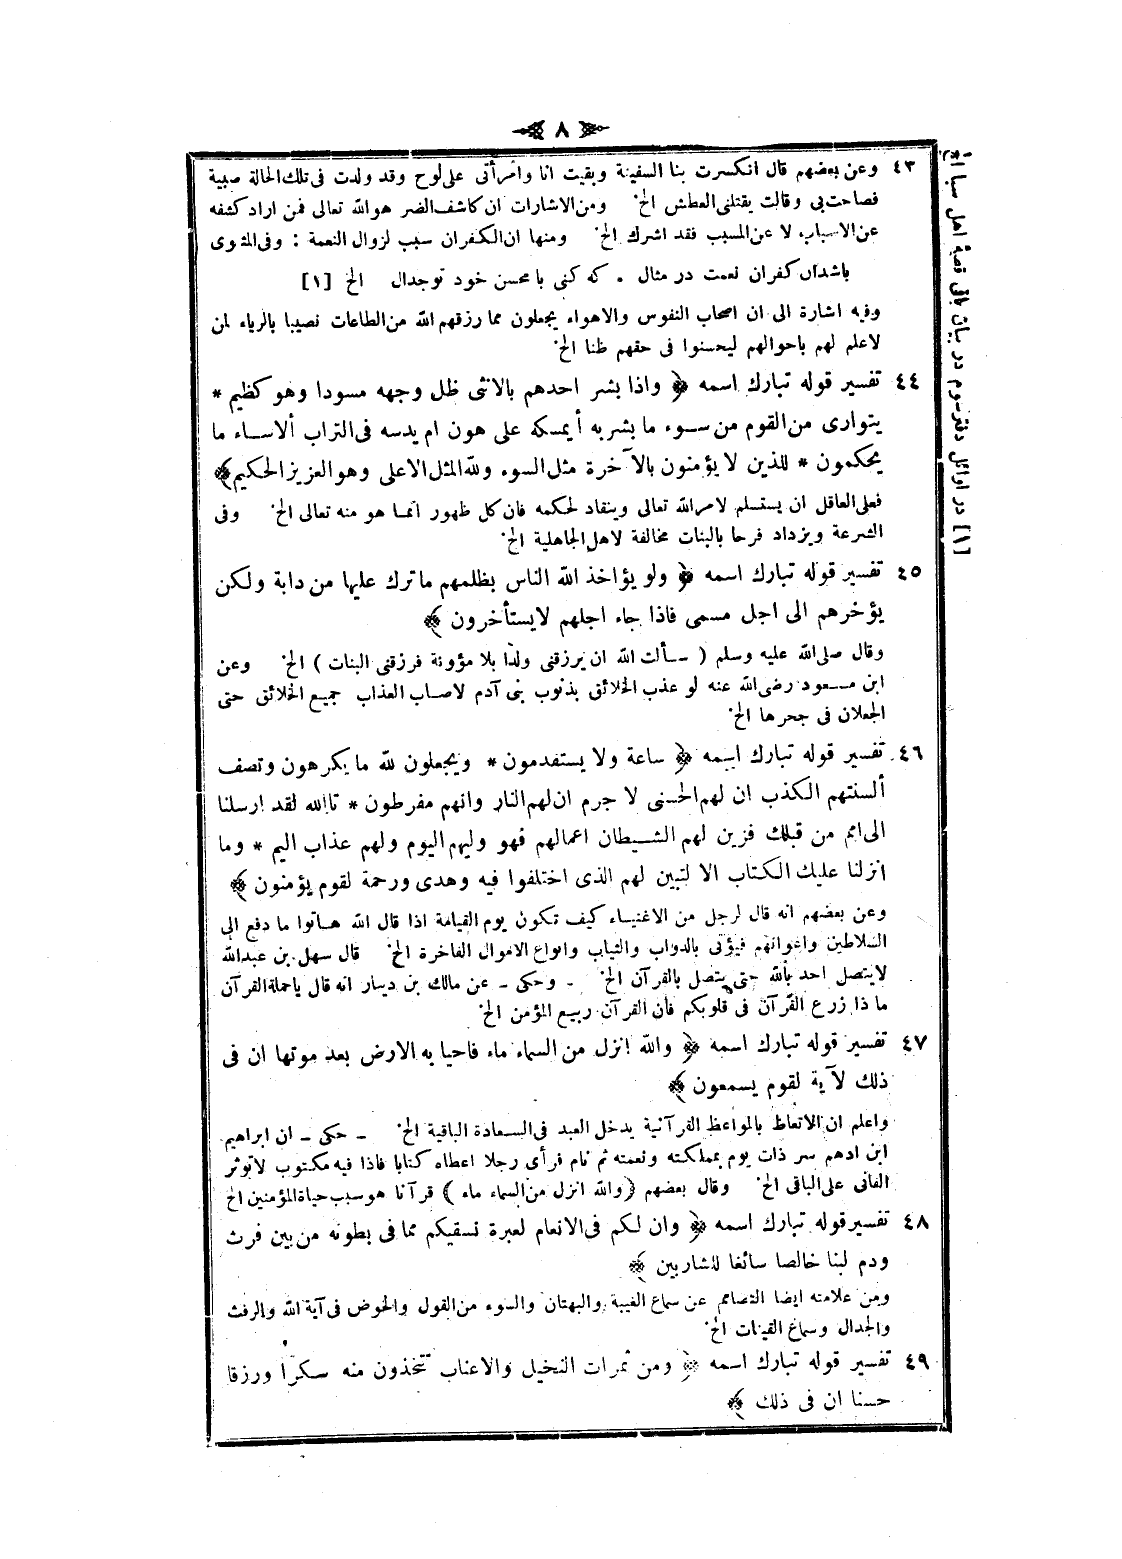 ٨
٤٣ وعن بعضهم قال انكسرت بنا السفينة وبقيت انا وامرأتى على لوح وقد ولدت فى تلك الحالة صبية
فصاحت بى وقالت يقتلنى العطش الخ. ومن الاشارات ان كاشف الضر هو الله تعالى فمن اراد كشفه
عن الاسباب لا عن المسبب فقد اشرك الخ. ومنها ان الكفران سبب لزوال النعمة : وفى المثنوى
باشدان كفران نعمت در مثال . كه كنى با محسن خود تو جدال الخ [١]
وفيه اشارة الى ان اصحاب النفوس والاهواء يجعلون مما رزقهم الله من الطاعات نصيبا بالرياء لمن
لاعلم لهم باحوالهم ليحسنوا فى حقهم ظنا الخ.
٤٤ تفسير قوله تبارك اسمه ﴿ واذا بشر احدهم بالانثى ظل وجهه مسودا وهو كظيم *
يتوارى من القوم من سوء ما بشر به أيمسكه على هون ام يدسه فى التراب ألاساء ما
يحكمون * للذين لا يؤمنون بالآخرة مثل السوء ولله المثل الاعلى وهو العزيز الحكيم﴾
فعلى العاقل ان يستسلم لامر الله تعالى وينقاد لحكمه فان كل ظهور انما هو منه تعالى الخ. وفى
الشرعة ويزداد فرحا بالبنات مخالفة لاهل الجاهلية الخ.
٤٥ تفسير قوله تبارك اسمه ﴿ ولو يؤاخذ الله الناس بظلمهم ماترك عليها من دابة ولكن
يؤخرهم الى اجل مسمى فاذا جاء اجلهم لايستأخرون ﴾
وقال صلى الله عليه وسلم ( سألت الله ان يرزقنى ولدا بلا مؤونة فرزقنى البنات ) الخ. وعن
ابن مسعود رضى الله عنه لو عذب الخلائق بذنوب بنى آدم لاصاب العذاب جميع الخلائق حتى
الجعلان فى جحرها الخ.
٤٦ تفسير قوله تبارك اسمه ﴿ ساعة ولا يستقدمون * ويجعلون لله ما يكرهون وتصف
ألسنتهم الكذب ان لهم الحسنى لا جرم ان لهم النار وانهم مفرطون * تالله لقد ارسلنا
الى امم من قبلك فزين لهم الشيطان اعمالهم فهو وليهم اليوم ولهم عذاب اليم * وما
انزلنا عليك الكتاب الا لتبين لهم الذى اختلفوا فيه وهدى ورحمة لقوم يؤمنون ﴾
وعن بعضهم انه قال لرجل من الاغنياء كيف تكون يوم القيامة اذا قال الله هاتوا ما دفع الى
السلاطين واعوانهم فيؤتى بالدواب والثياب وانواع الاموال الفاخرة الخ. قال سهل بن عبدالله
لايتصل احد بالله حتى يتصل بالقرآن الخ. - وحكى - عن مالك بن دينار انه قال ياحملة القرآن
ما ذا زرع القرآن فى قلوبكم فان القرآن ربيع المؤمن الخ.
٤٧ تفسير قوله تبارك اسمه ﴿ والله انزل من السماء ماء فاحيا به الارض بعد موتها ان فى
ذلك لآية لقوم يسمعون ﴾
واعلم ان الاتعاظ بالمواعظ القرآنية يدخل العبد فى السعادة الباقية الخ. - حكى - ان ابراهيم
ابن ادهم سر ذات يوم بمملكته ونعمته ثم نام فرأى رجلا اعطاه كتابا فاذا فيه مكتوب لاتوثر
الفانى على الباقى الخ. وقال بعضهم (والله انزل من السماء ماء ) قرآنا هو سبب حياة المؤمنين الخ
٤٨ تفسير قوله تبارك اسمه ﴿ وان لكم فى الانعام لعبرة نسقيكم مما فى بطونه من بين فرث
ودم لبنا خالصا سائغا للشاربين ﴾
ومن علامته ايضا التصامم عن سماع الغيبة والبهتان والسوء من القول والخوض فى آية الله والرفث
والجدال وسماع القينات الخ.
٤٩ تفسير قوله تبارك اسمه ﴿ ومن ثمرات النخيل والاعناب تتخذون منه سكرا ورزقا
حسنا ان فى ذلك ﴾
[١] در اوائل دفتر سوم در بيان باقى قصهٔ اهل سبا الخ